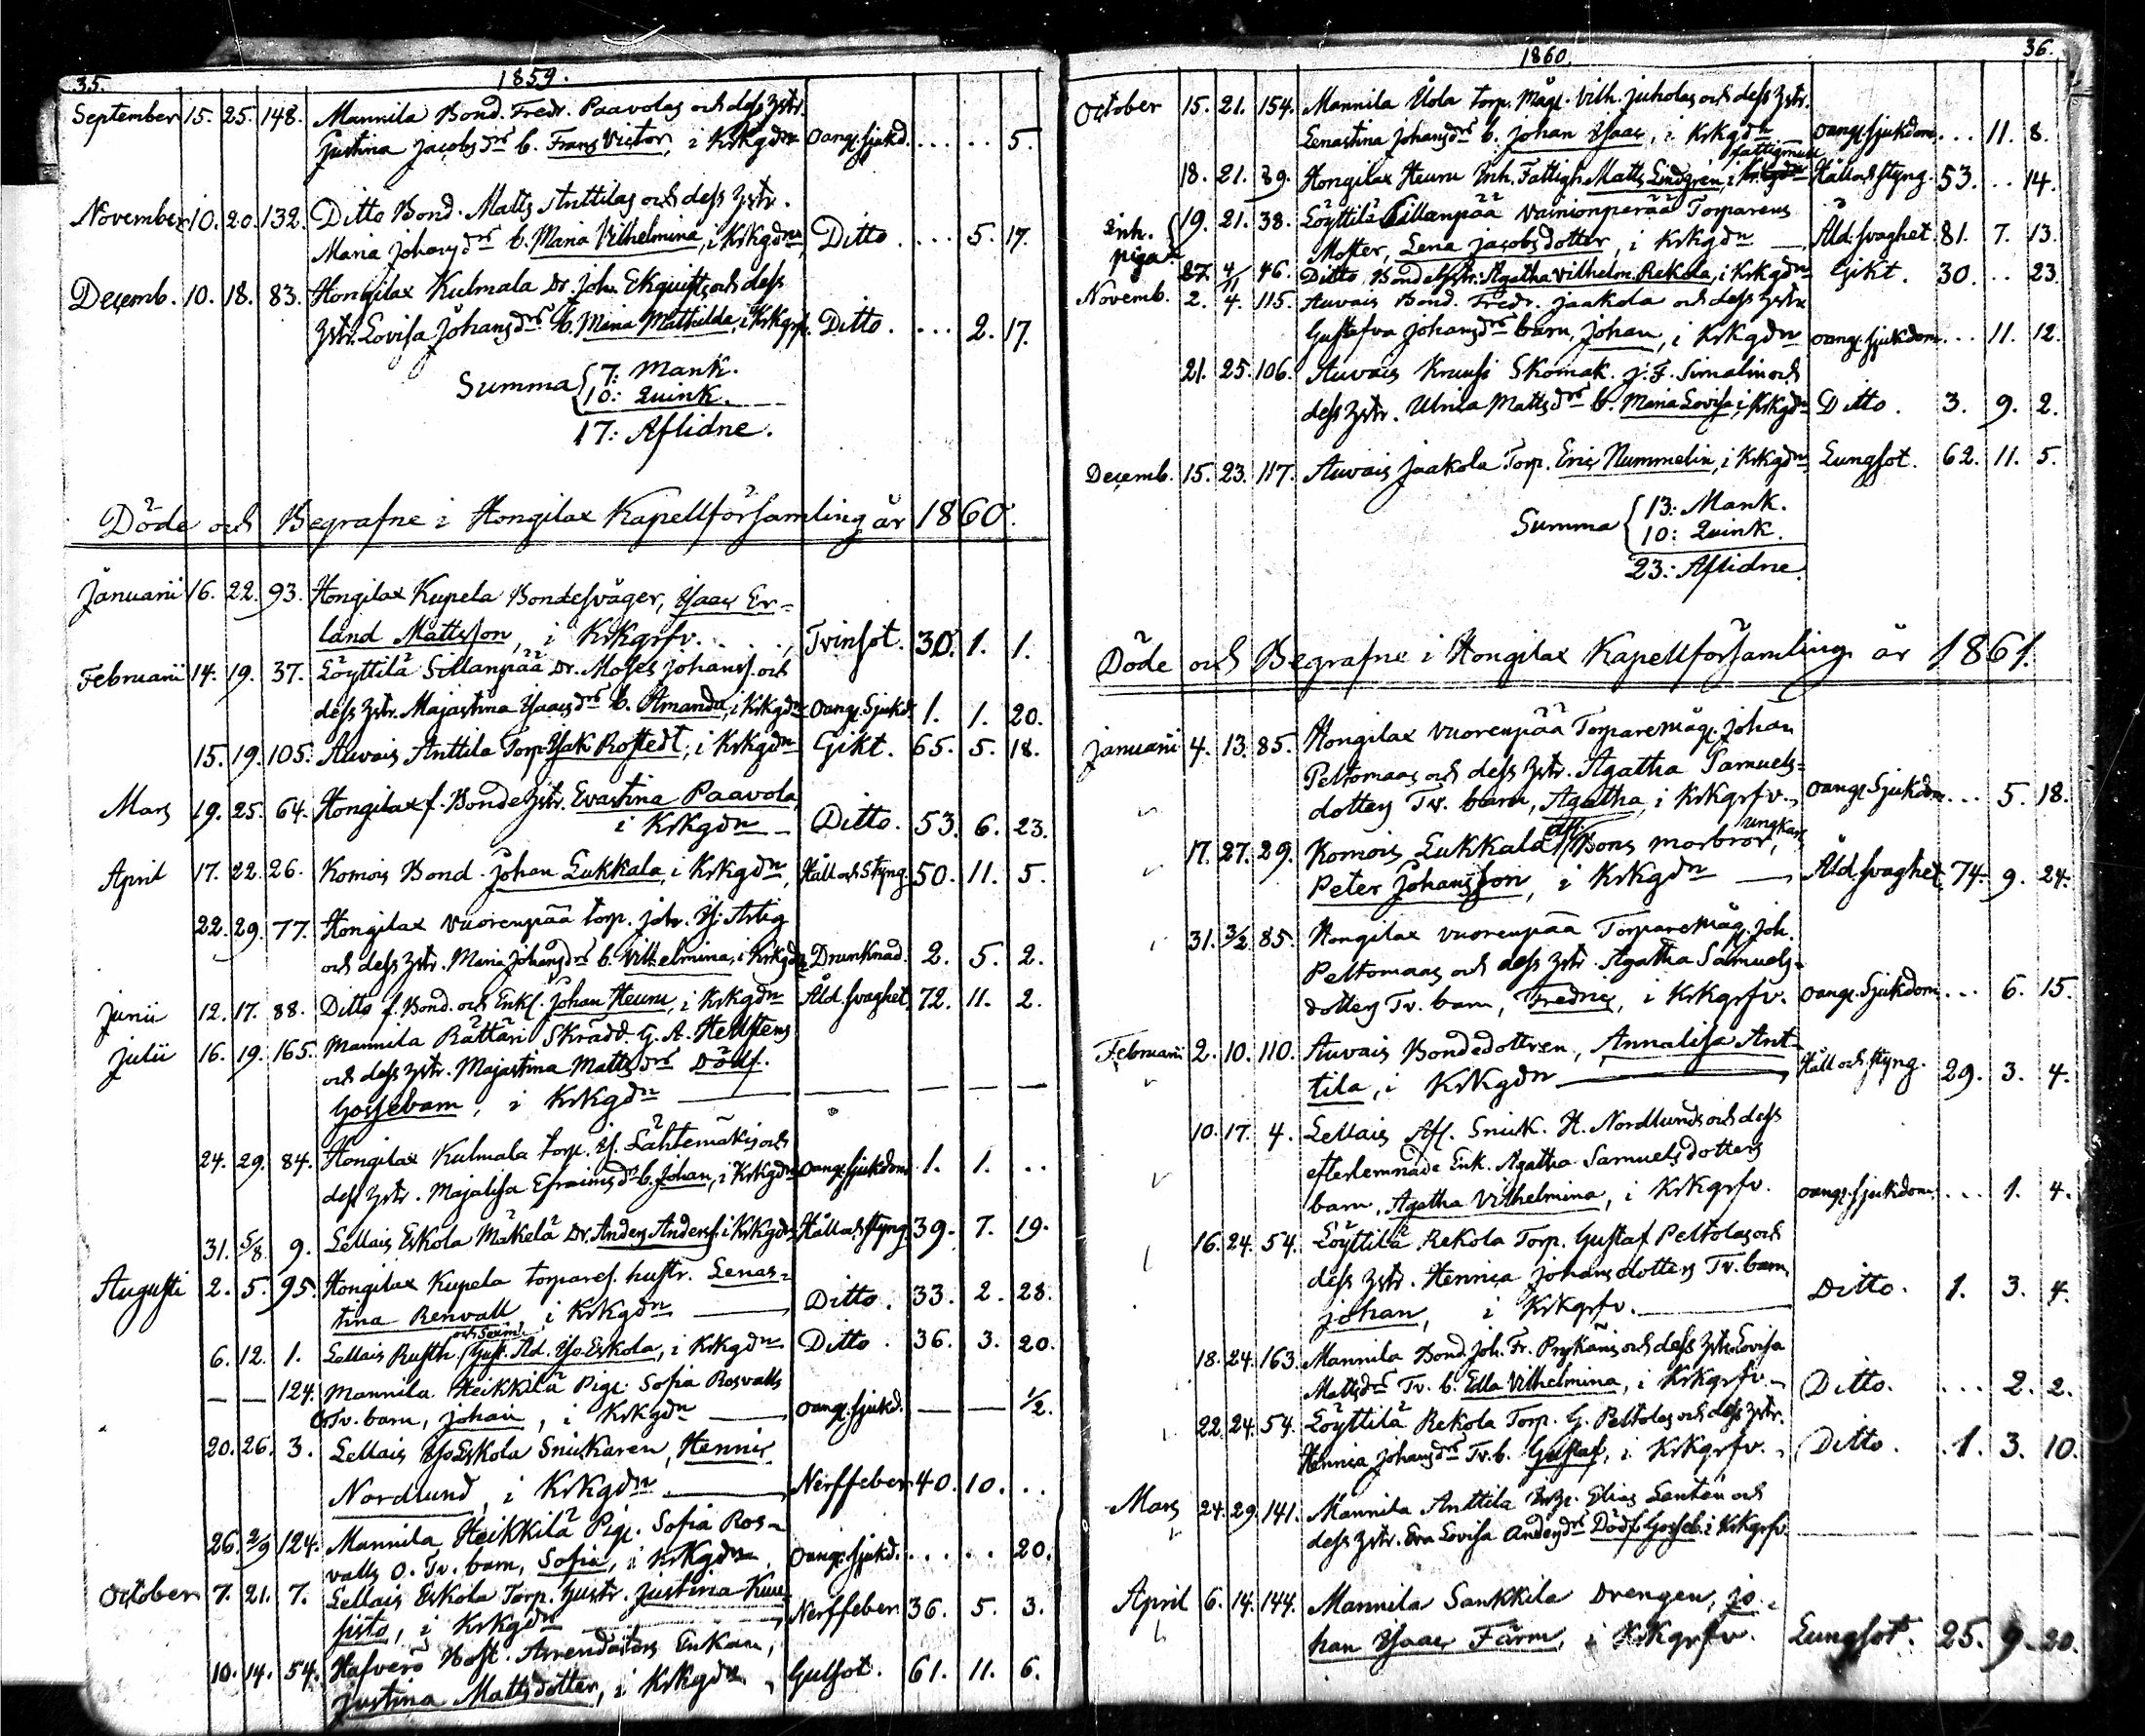 35.
1859.
September 15. 25. 148. Mannila Bond. Fredr. Paavolas och dess Hstr.
Justina Jacobsdrs b. Frans Victor, i Krkgdn Oang. sjukd. . . . . . 5.
November 10. 20. 132. Ditto Bond. Matts Anttilas och dess Hstr.
Maria Johansdrs b. Maria Vilhelmina, i Krkgdn, Ditto . . . . 5. 17.
Decemb. 10. 18. 83. Hongilax Kulmala Dr. Joh. Ekquists och dess
Hstr. Lovisa Johansdrs b. Maria Mathilda, i Krkgrfv. Ditto. . . . 2. 17.
Summa 7: Mank.
10: Quink.
17: Aflidne.
Döde och Begrafne i Hongilax Kapellförsamling år 1860.
Januarii 16. 22. 93. Hongilax Kupela Bondesvåger, Isaac Er-
land Mattsson, i Krkgrfv. . . . Tvinsot. 30. 1. 1.
Februarii 14. 19. 37. Löyttilä Sillanpää Dr. Moses Johanss. och
dess Hstr. Majastina Isaacsdrs b. Amanda, i Krkgdn Oang. Sjukd. 1. 1. 20.
15. 19. 105. Auvais Anttila Torp. Isak Rostedt, i Krkgdn Gikt. 65. 5. 18.
Mars 19. 25. 64. Hongilax f. Bonde Hstr. Evastina Paavola,
i Krkgdn Ditto. 53. 6. 23.
April 17. 22. 26. Komois Bond. Johan Lukkala, i Krkgdn, Håll och Styng. 50. 11. 5.
22. 29. 77. Hongilax Vuorenpää Torp. Joh. Is. Artig
och dess Hstr. Maria Johansdrs b. Vilhelmina, i Krkgdn Drunknad. 2. 5. 2.
Junii 12. 17. 88. Ditto f. Bond. och Enkl. Johan Heuru, i Krkgdn Åld. svaghet. 72. 11. 2.
Julii 16. 19. 165. Mannila Rättäri Skrädd. G. A. Hellstens
och dess Hstr. Majastina Mattsdrs Dödf.
Gossebarn, i Krkgdn — — — —
24. 29. 84. Hongilax Kulmala Torp. Is. Lähtemäkis och
dess Hstr. Majalisa Efraimsdrs b. Johan, i Krkgdn Oang. sjukdom. 1. 1. . .
31. 5/8. 9. Lellais Eskola Mäkelä Dr. Anders Anderss. i Krkgdn Håll och styng. 39. 7. 19.
Augusti 2. 5. 95. Hongilax Kupela Torpares hustr. Lenas-
tina Renvall, i Krkgdn — Ditto. 33. 2. 28.
och Sexm.
6. 12. 1. Lellais Rusth. Gust. Ad. Iso Eskola, i Krkgdn Ditto. 36. 3. 20.
— — 124. Mannila Heikkilä Pig. Sofia Rosvalls
O. Tv. barn, Johan, i Krkgdn — Oang. sjukd. — — 1/2.
20. 26. 3. Lellais Iso Eskola Snickaren, Hennic
Nordlund, i Krkgdn — Nerffeber 40. 10. . .
26. 2/9 124. Mannila Heikkilä Pig. Sofia Ros-
valls O. Tv. barn, Sofia, i Krkgdn, Oang. sjukd. . . . . 20.
October 7. 21. 7. Lellais Eskola Torp. Hustr. Justina Kuu-
sisto, i Krkgdn — Nerffeber 36. 5. 3.
10. 14. 54. Hafverö Host. Arrendators Enkan,
Justina Mattsdotter, i Krkgdn, Gulsot. 61. 11. 6.
1860.
36.
October 15. 21. 154. Mannila Uola Torp. Måg. Vilh. Juholas och dess Hstr.
Lenastina Johansdrs b. Johan Isaac, i Krkgdn — Oang. sjukdom. . . . 11. 8.
18. 21. 89. Hongilax Heuru Inh. Fattigh. Matts Lindgren, i Håll och styng. 53. . . 14.
Inh. piga 19. 21. 38. Löyttilä Sillanpää Vainionperää Torparens
Moster, Lena Jacobsdotter, i Krkgdn — Åld. svaghet. 81. 7. 13.
27. 4/11 46. Ditto Bondehstr. Agatha Vilhelm. Rekola, i Krkgdn Gikt. 30. . . 23.
Novemb. 2. 4. 115. Auvais Bond. Fredr. Jaakola och dess Hstr.
Gustafva Johansdrs barn, Johan, i Krkgdn Oang. sjukdom. . . . 11. 12.
21. 25. 106. Auvais Kruusi Skomak. J. F. Simalin och
dess Hstr. Ulrica Mattsdrs b. Maria Lovisa, i Krkgdn Ditto. 3. 9. 2.
Decemb. 15. 23. 117. Auvais Jaakola Torp. Eric Nummelin, i Krkgdn Lungsot. 62. 11. 5.
Summa 13: Mank.
10: Quink.
23: Aflidne.
Döde och Begrafne i Hongilax Kapellförsamling år 1861.
Januarii 4. 13. 85. Hongilax Vuorenpää Torparemåg. Johan
Peltomaas och dess Hstr. Agatha Samuels-
dotters Tv. barn, Agatha, i Krkgrfv., Oang. Sjukdom. . . . 5. 18.
17. 27. 29. Komois Lukkala Bons morbror, ungkarl
Peter Johansson, i Krkgdn — Åld. svaghet. 74. 9. 24.
31. 3/2 85. Hongilax Vuorenpää Torparemåg. Joh.
Peltomaas och dess Hstr. Agatha Samuels-
dotters Tv. barn, Fredric, i Krkgrfv. Oang. Sjukdom. . . . 6. 15.
Februarii 2. 10. 110. Auvais Bondedottren, Annalisa Ant-
tila, i Krkgdn — Håll och styng. 29. 3. 4.
10. 17. 4. Lellais Afl. Snick. H. Nordlunds och dess
efterlemnade Enk. Agatha Samuelsdotters
barn, Agatha Vilhelmina, i Krkgrfv. Oang. sjukdom. . . . 1. 4.
16. 24. 54. Löyttilä Rekola Torp. Gustaf Peltolas och
dess Hstr. Henrica Johansdotters Tv. barn,
Johan, i Krkgrfv. — Ditto. 1. 3. 4.
18. 24. 163. Mannila Bond. Joh. Fr. Prykäris och dess Hstr. Lovisa
Mattsdrs Tv. b. Edla Vilhelmina, i Krkgrfv. Ditto. . . . 2. 2.
22. 24. 54. Löyttilä Rekola Torp. G. Peltolas och dess Hstr.
Henrica Johansdrs Tv. b. Gustaf, i Krkgrfv. Ditto. 1. 3. 10.
Mars 24. 29. 141. Mannila Anttila Elias Lentén och
dess Hstr. Eva Lovisa Andersdrs Dödf. Gosseb. i Krkgrfv. — — — —
April 6. 14. 144. Mannila Sankkila Drengen, Jo-
han Isaac Färm, i Krkgrfv. Lungsot. 25. 9. 20.